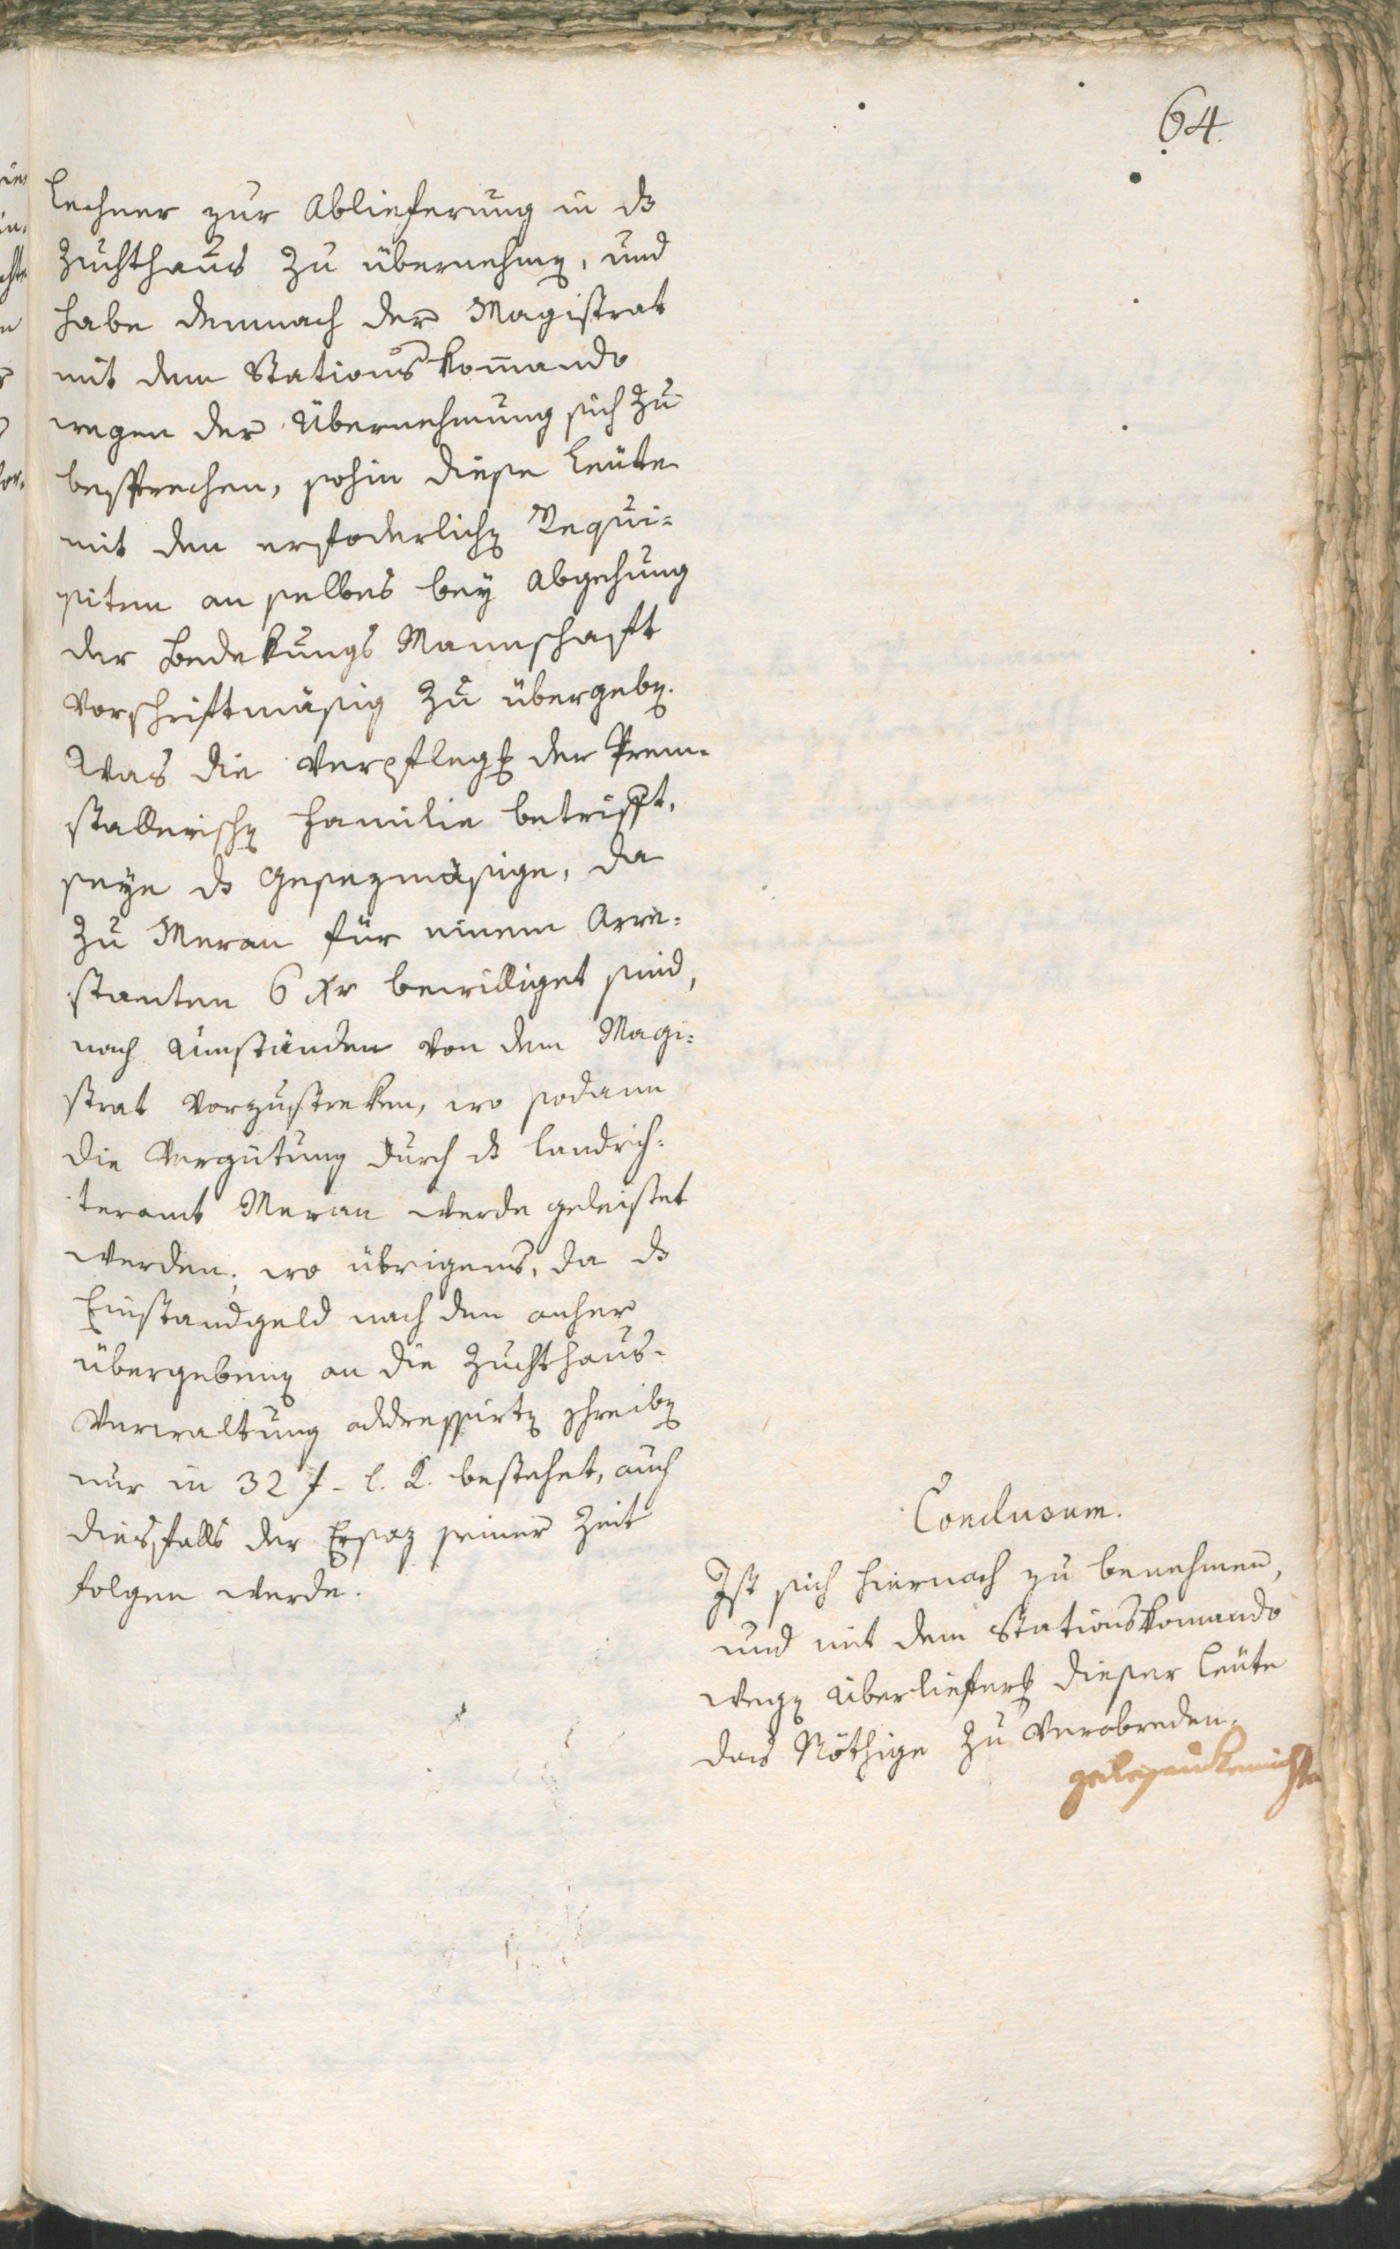 64.
Lechner zur Ablieferung in ds
Zuchthaus zu übernehmen, und
habe demnach der Magistrat
mit dem Stations Kom̄ando
wegen der Übernehmung sich zu
besprechen, sohin diese Leüte
mit den erfoderlichen Requi=
siten an selbes bey Abgehung
der Bedekungs Mannschaft
vorschriftmäsig zu übergeben.
Was die Verpflegung der Prem=
stallerischen Familie betrifft,
seye ds Gesezmäsige, da
zu Meran für einem Arre=
stanten 6 xr bewilliget sind,
nach Umständen von dem Magi=
strat vorzustreken, wo sodann
die Vergütung durch ds Landrich=
teramt Meran werde geleistet
werden; wo übrigens, da ds
Einstandgeld nach den anher
übergebenen an die Zuchthaus=
Verwaltung addressirten schreiben
nur in 32 f - bestehet, auch
diesfalls der Ersaz seiner Zeit
folgen werde.
Conclusum.
Ist sich hiernach zu benehmen,
und mit dem Stationskomando
wegen Überlieferung dieser Leüte
das Nöthige zu verabreden.